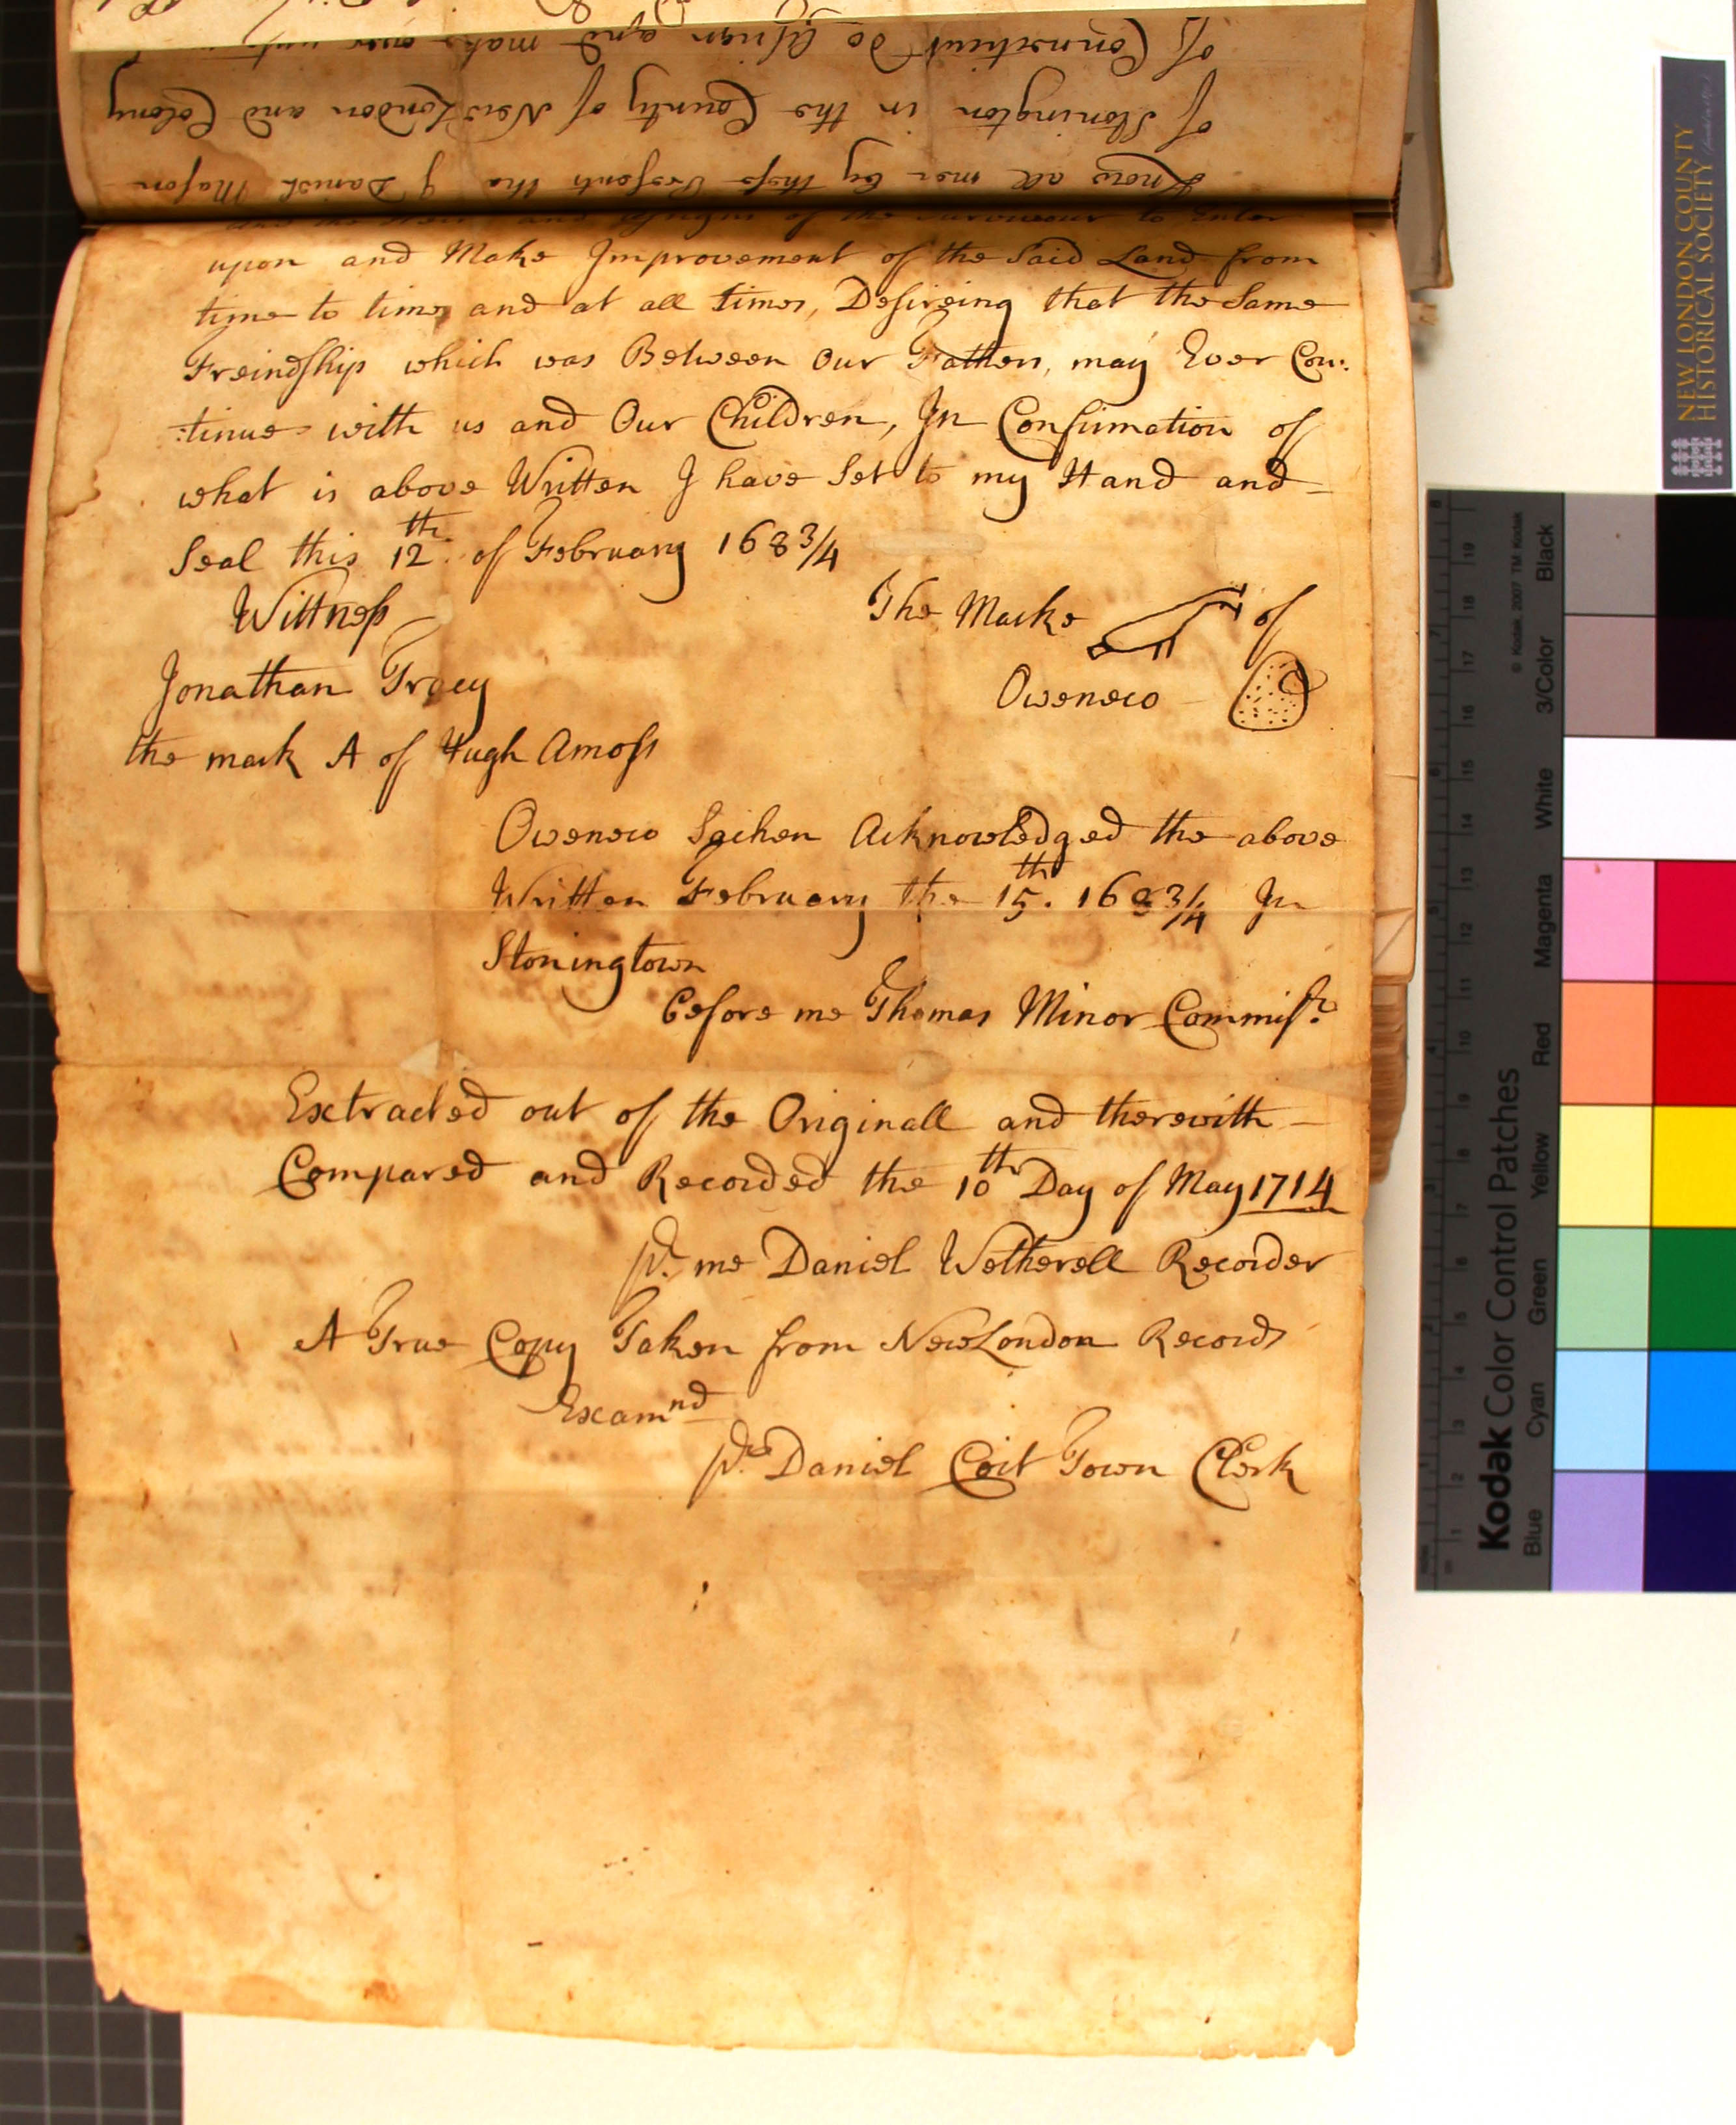 of Connecticut do Asign and make over unto
of Stonington in the County of New London and Colony
Know all men by these Presents tha I Daniel Mason
upon and Make Improvement of the Said Land from
time to time and at all times, Desireing that the Same
Freindship which was Between Our Fathers, may Ever Con:
:tinue with us and Our Children, In Confirmation of
what is above Written I have Set to my Hand and
Seal this 12th. of February 1683/4
Wittness
The Marke of
Jonathan Tracy
Oweneco
the mark A of Hugh Amoss
Oweneco Sachen Acknowledged the above
Written February the 15th. 1683/4 In
Stoningtown
before me Thomas Minor Commisr.
Extracted out of the Originall and therewith
Compared and Recorded the 10th Day of May 1714
pr. me Daniel Wetherell Recorder
A True Copy Taken from New London Records
Examnd
pr. Daniel Coit Town Clerk
NEW LONDON COUNTY
HISTORICAL SOCIETY
Kodak Color Control Patches
© Kodak, 2007 TM: Kodak
Blue Cyan Green Yellow Red Magenta White 3/Color Black
1 2 3 4 5 6 7 8 9 10 11 12 13 14 15 16 17 18 19